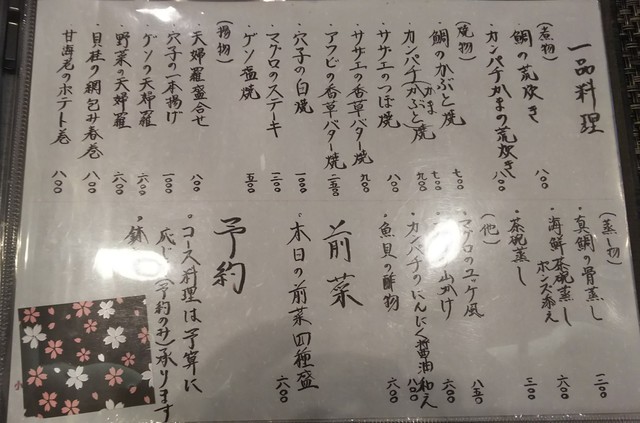 一品料理
(煮物)
・鯛の荒炊き 八〇〇
・カンパチかまの荒炊き 八〇〇
(焼物)
・鯛のかぶと焼 七〇〇
・カンパチ(かぶと・かま)焼 七〇〇 九〇〇
・サザエのつぼ焼 八〇〇
・サザエの香草バター焼 九〇〇
・アワビの香草バター焼
・穴子の白焼 一〇〇〇
・マグロのステーキ
・ゲソ塩焼 五〇〇
(揚物)
天婦羅盛合せ 八〇〇
穴子の一本揚げ 一〇〇〇
ゲソの天婦羅 六〇〇
・野菜の天婦羅 六〇〇
・貝柱の網包み春巻 八〇〇
甘海老のポテト巻 八〇〇
(蒸し物)
・真鯛の骨蒸し
・海鮮茶碗蒸し ポンズ添え 六〇〇
・茶碗蒸し 三〇〇
(他)
マグロのユッケ風 八五〇
山かけ 六〇〇
・カンパチのにんにく醤油和え 八〇〇
・魚貝の酢物 六〇〇
前菜
・本日の前菜四種盛 六〇〇
予約
・コース料理は予算に
応じ(予約のみ)承ります